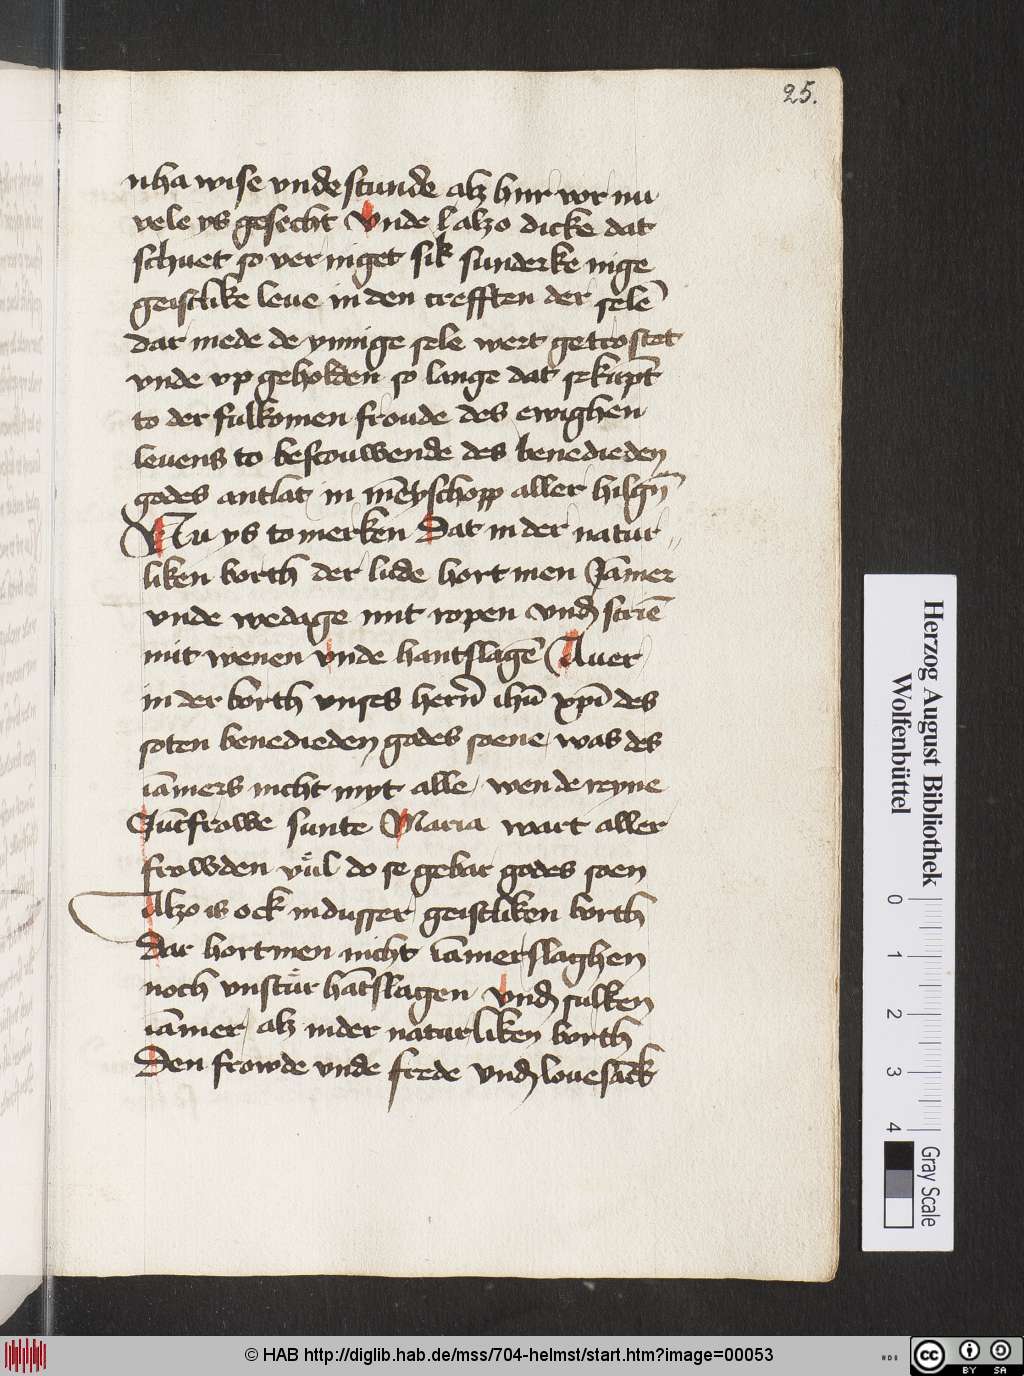 25.
nha wise vnde stunde alz hnr vor nu
vele ys gesecht Vnde alzo dicke dat
schuet so ver niget sik sunderke nige
geistlike leue in den crefften der selē
dar mede de ynnige sele wert getrostet
vnde vp geholden so lange dat se kūpt
to der fulkomen froude des ewighen
leuens to bescouwende des benedieden
godes antlat in mēyschopp aller hilgn̄
Nu ys to merken Dat in der natur
liken borth der lude hort men Jāmer
vnde wedage mit ropen vnđ scriē
mit wenen vnde hantslagē Auer
in der borth vnses hern̄ ihū xp̄i des
soten benedieden godes soene was des
iāmers nicht myt alle / wen de reyne
Jūcfrowe sunte Maria wart aller
frowden vůl do se gebar godes soen
Alzo is ock in dusser geistliken borth
Dar hortmen nicht iāmerslaghen
noch vnstůr hātslagen vnđ sulken
iāmer / alz inder naturliken borth
Den frowde vnde frede vnđ louesāck
Herzog August Bibliothek
Wolfenbüttel
0 1 2 3 4
Gray Scale
© HAB http://diglib.hab.de/mss/704-helmst/start.htm?image=00053
HAB
cc BY SA